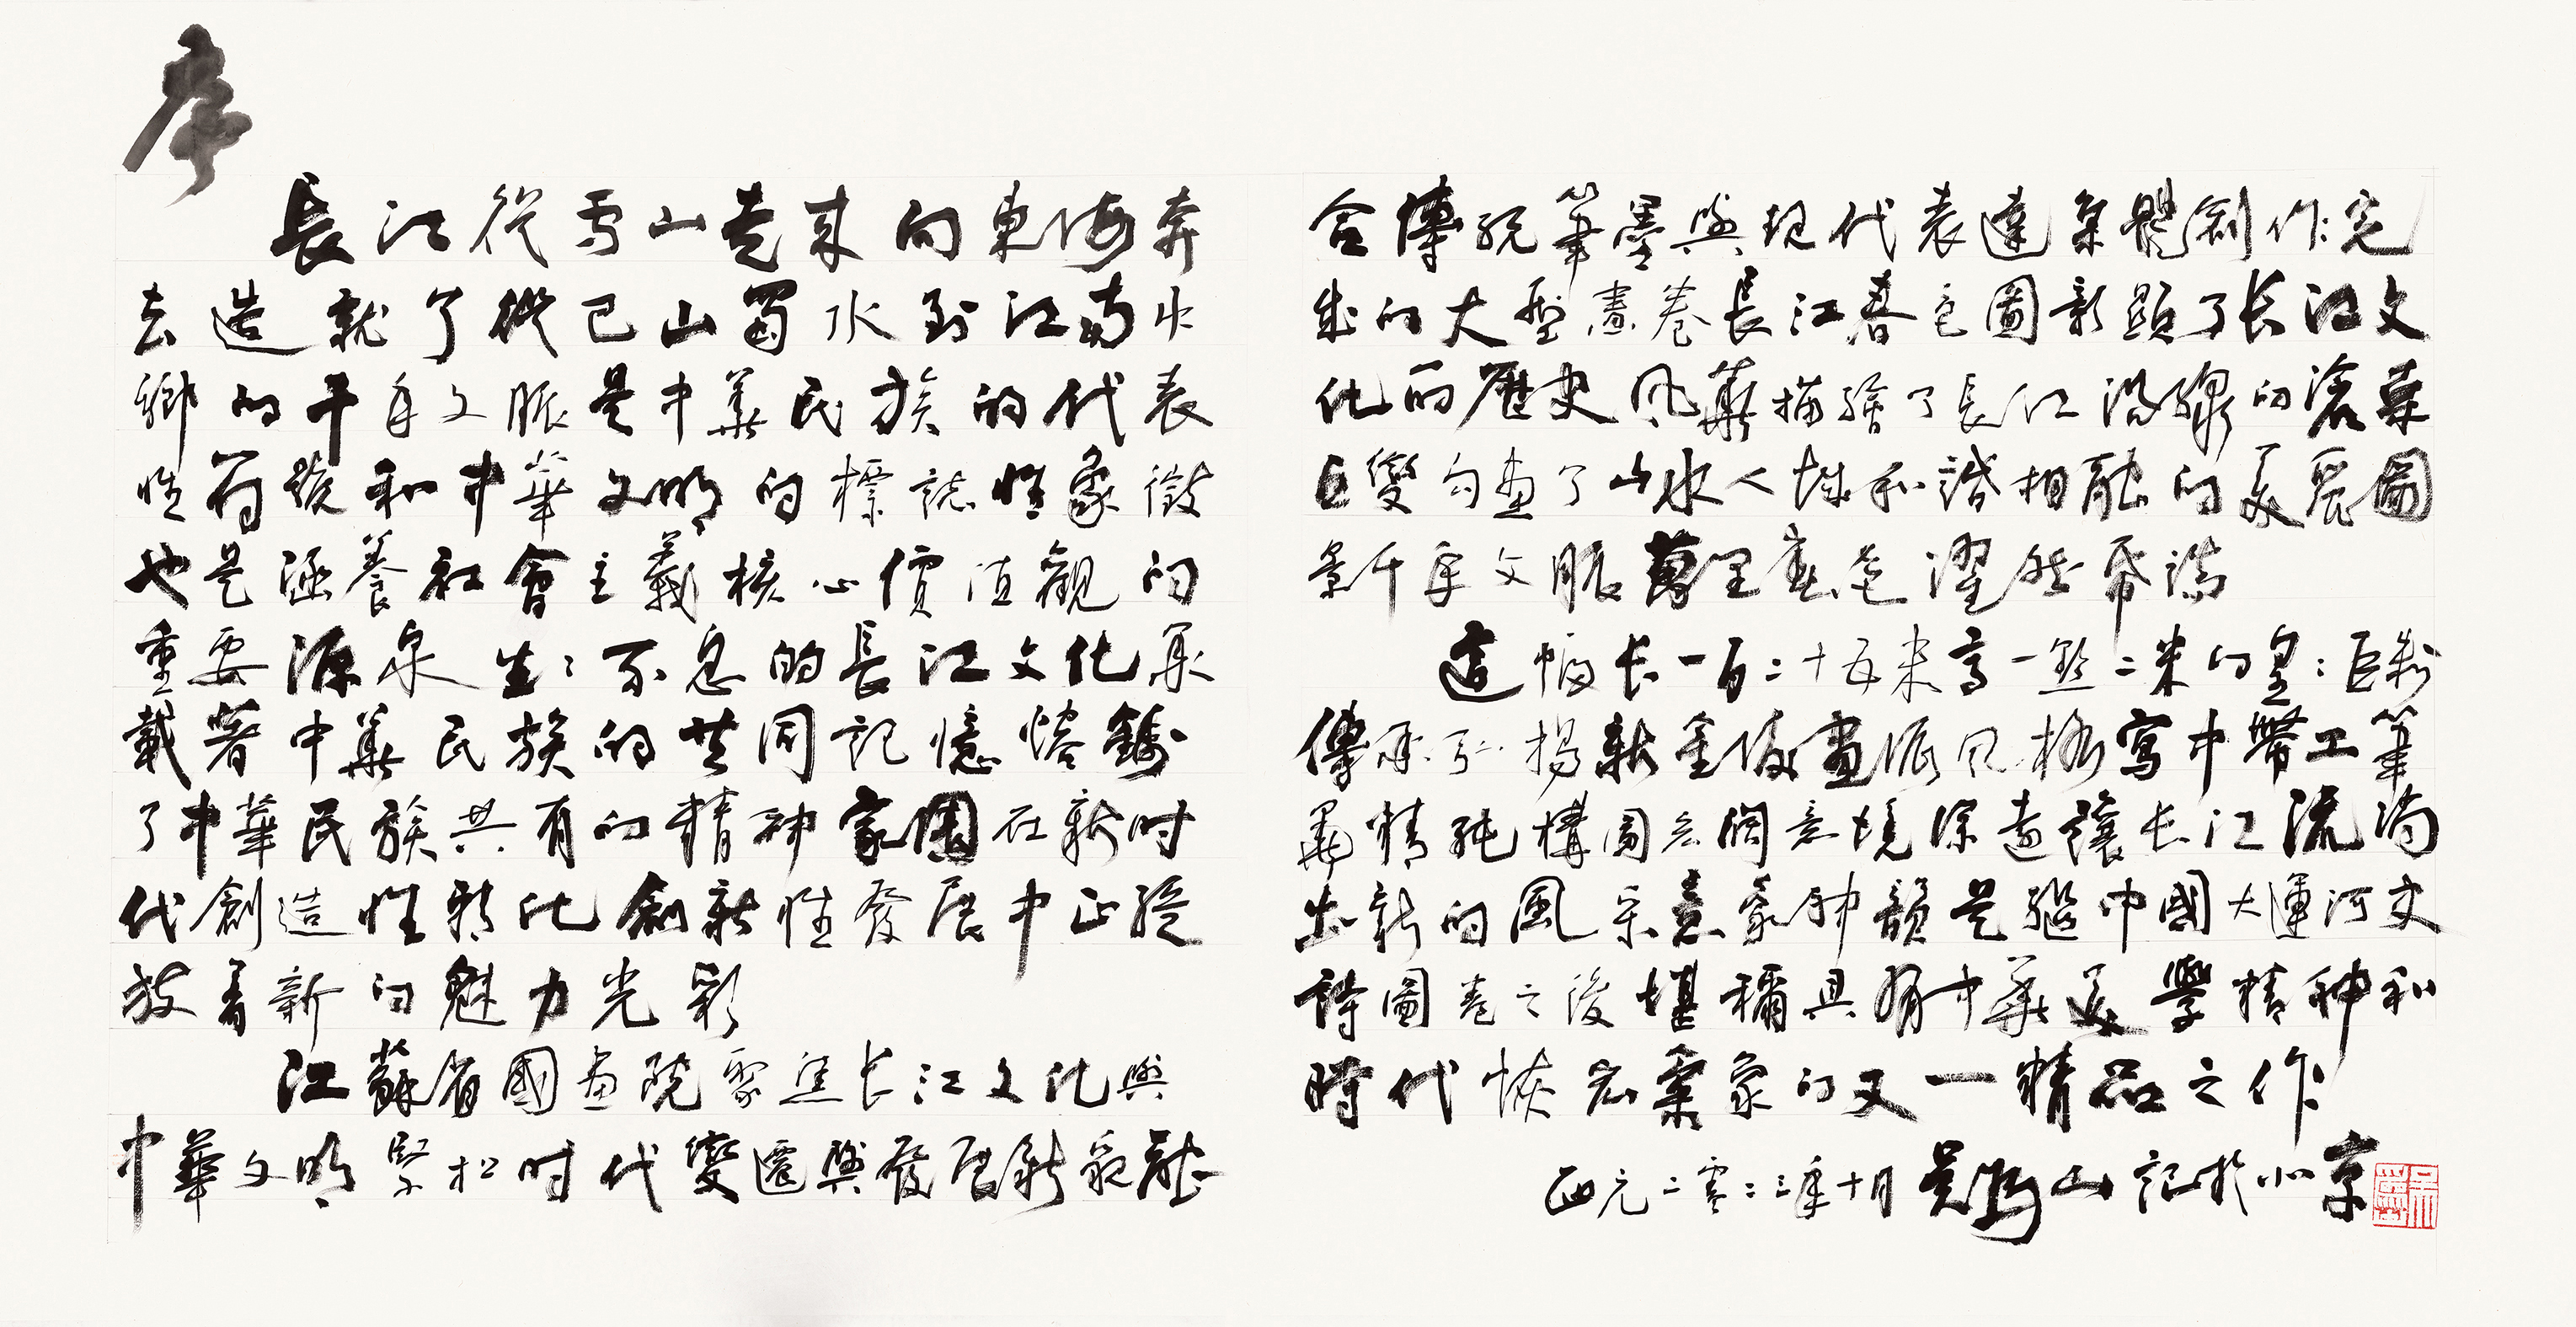 序
長江從雪山走來向東海奔
去造就了從巴山蜀水到江南水
鄉的千年文脈是中華民族的代表
性符號和中華文明的標誌性象徵
也是涵養社會主義核心價值觀的
重要源泉生生不息的長江文化承
載著中華民族的共同記憶熔鑄
了中華民族共有的精神家園在新时
代創造性轉化創新性發展中正綻
放着新的魅力光彩
江蘇省國畫院聚焦长江文化與
中華文明緊扣时代變遷與發展新貌融
合傳統筆墨與現代表達集體創作完
成的大型畫卷長江春色圖彰顯了长江文
化的歷史風華描繪了長江沿線的滄桑
巨變勾畫了山水人城和諧相融的美麗圖
景千年文脈萬里春色躍然帋端
這幅长一百二十五米高一點二米的皇皇巨製
傳承弘揚新金陵畫派風格寫中帶工筆
墨精純構圖宏闊意境深遠讓长江流淌
出新的風采意象神韻是繼中國大運河史
詩圖卷之後堪稱具有中華美學精神和
時代恢宏氣象的又一精品之作
西元二零二三年十月吳為山記於北京